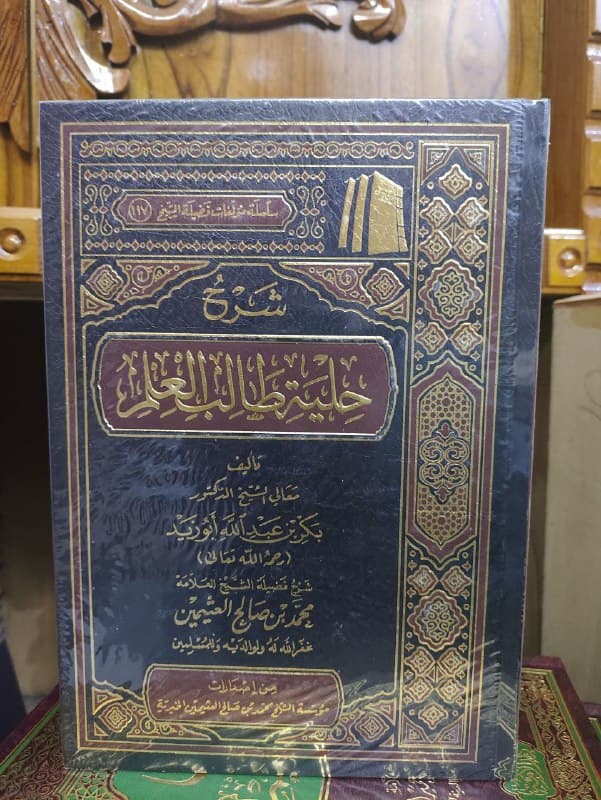 سلسلة مؤلفات فضيلة الشيخ (١١٧)
شرح
حلية طالب العلم
تأليف
معالي الشيخ الدكتور
بكر بن عبد الله أبو زيد
(رحمه الله تعالى)
شرح فضيلة الشيخ العلامة
محمد بن صالح العثيمين
غفر الله له ولوالديه وللمسلمين
من إصدارات
مؤسسة الشيخ محمد بن صالح العثيمين الخيرية